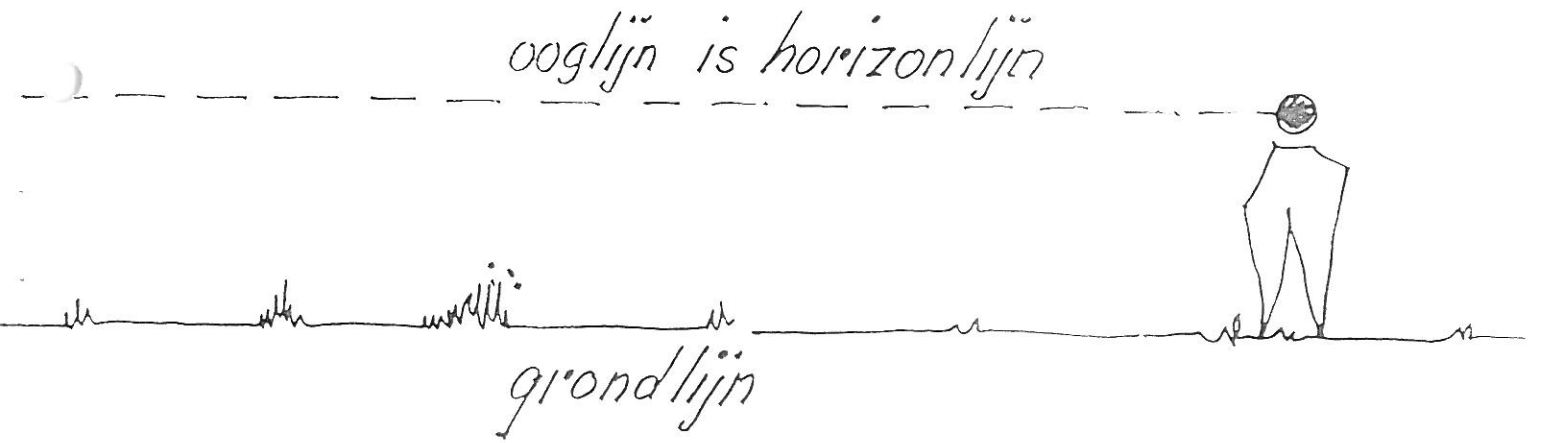 ooglijn is horizonlijn
grondlijn